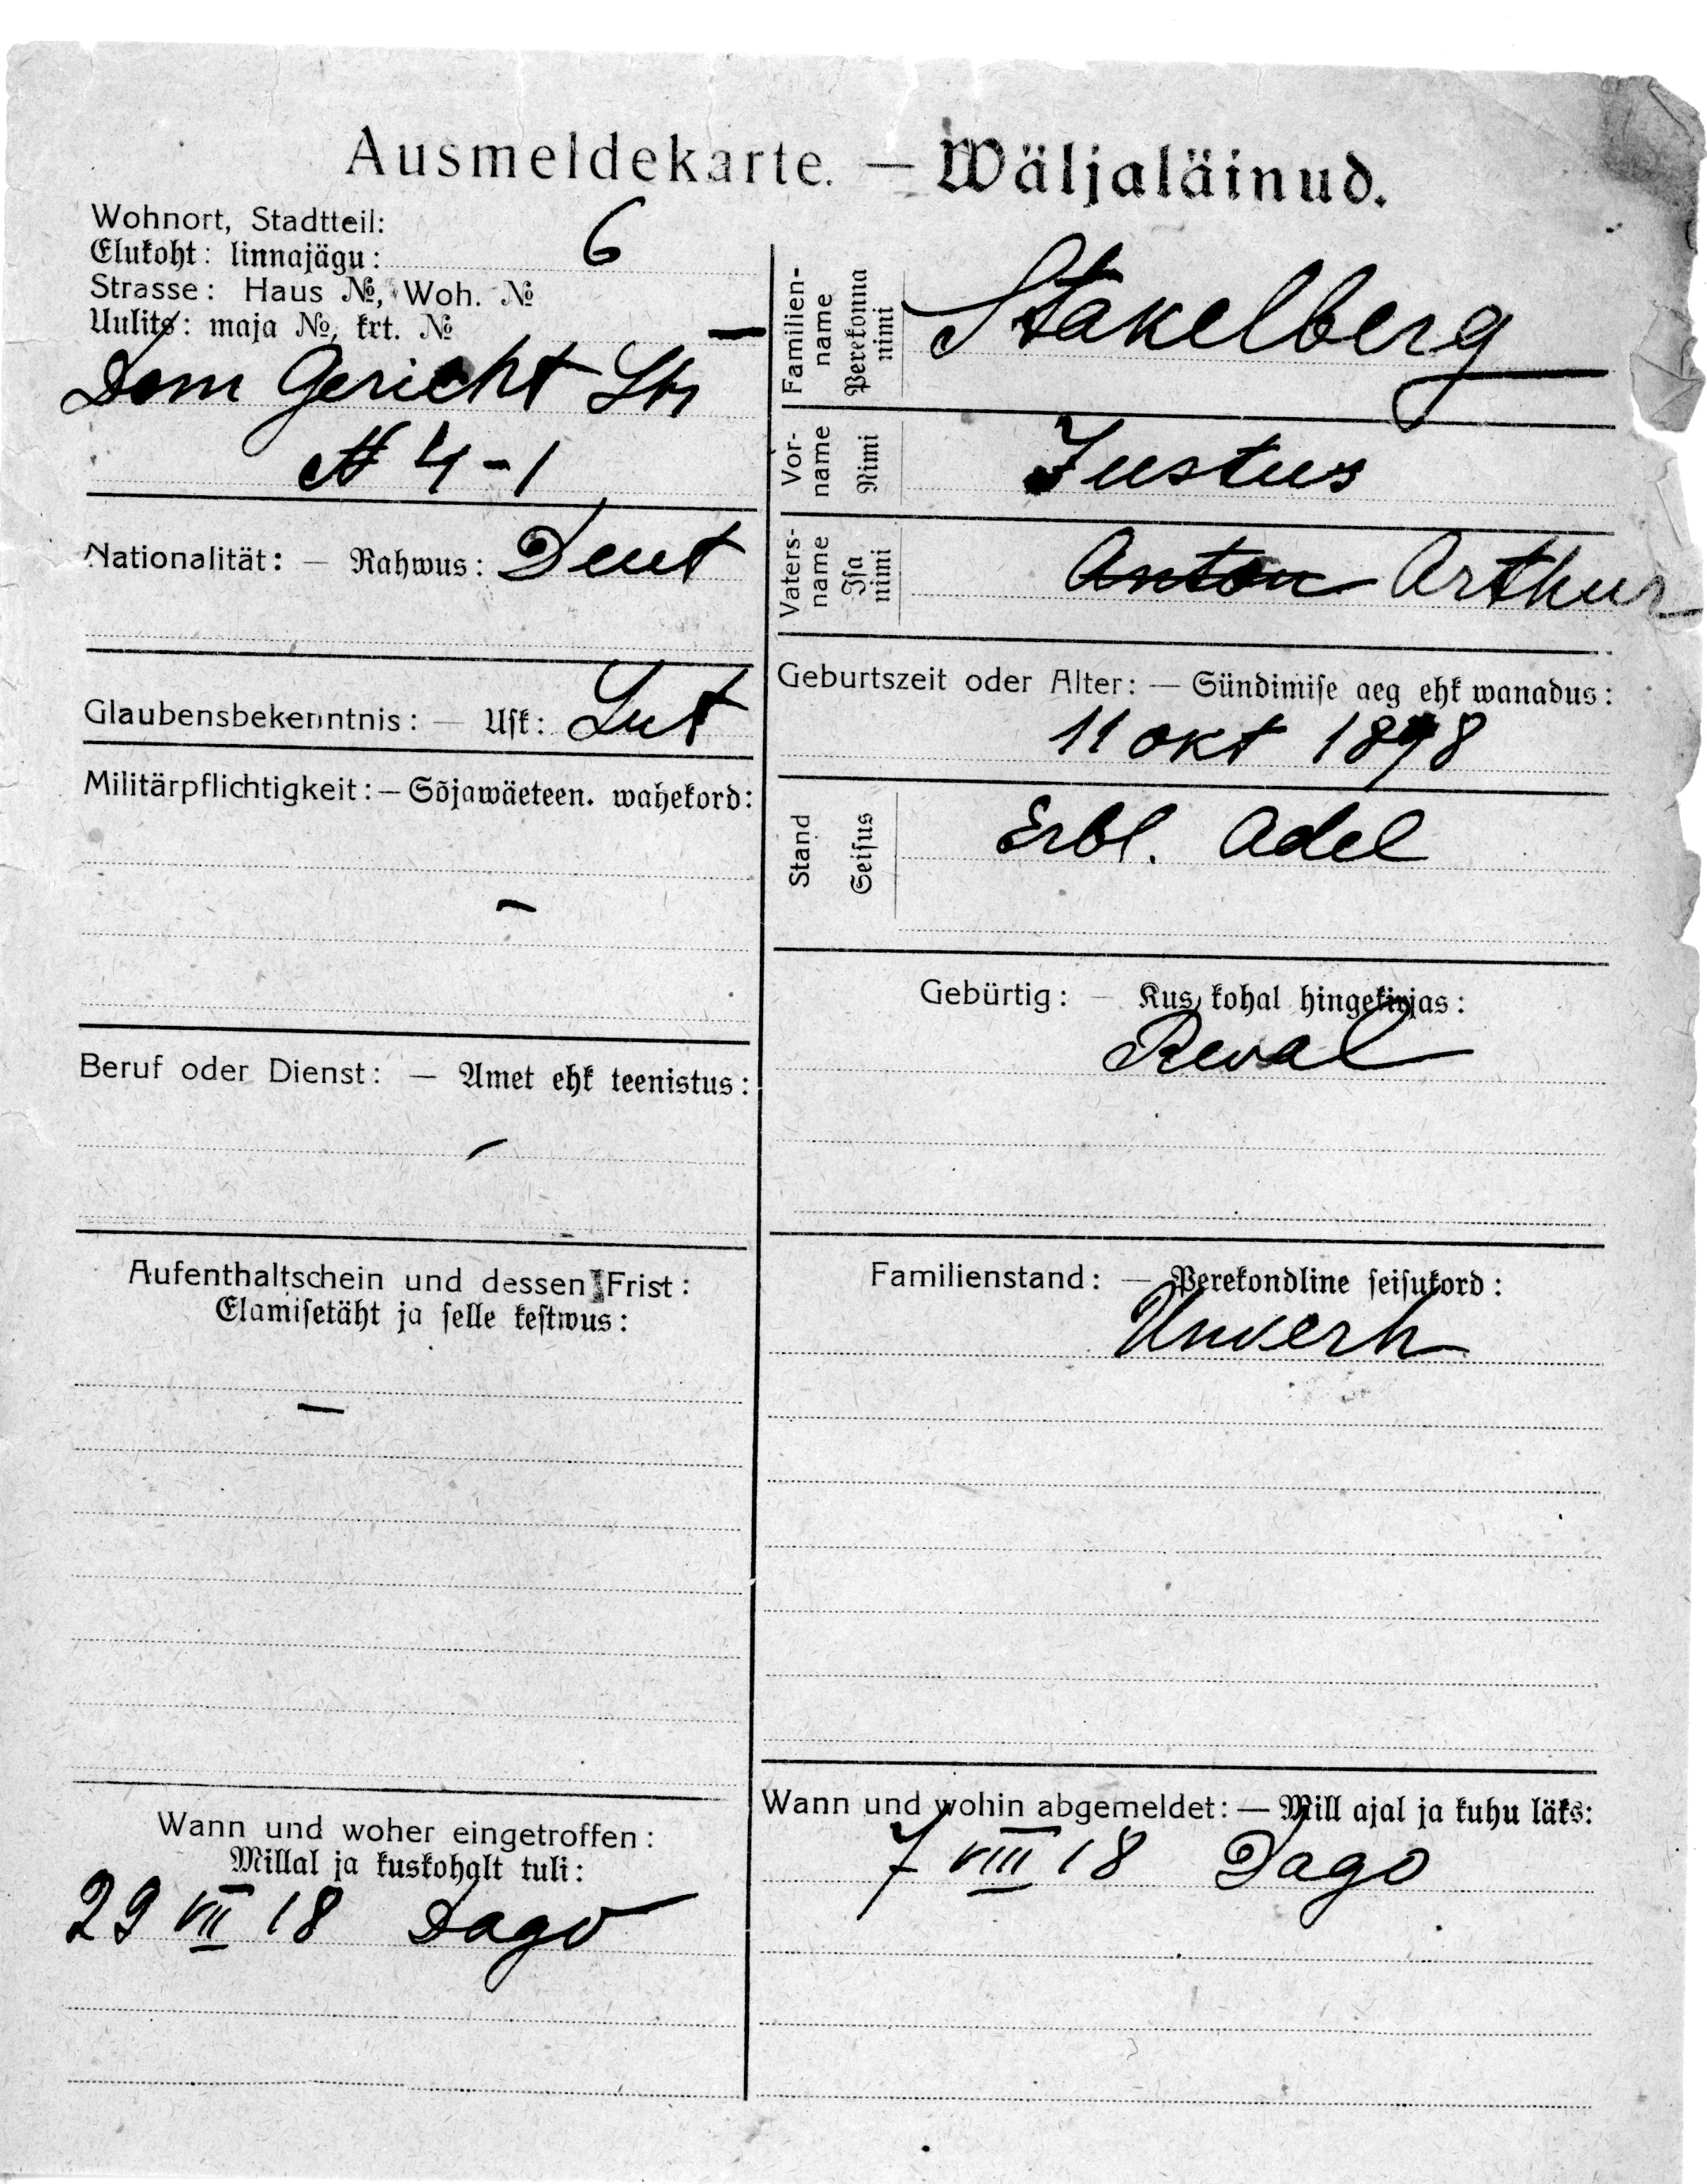 Ausmeldekarte. — Wäljaläinud.
Wohnort, Stadtteil:
Elukoht: linnajägu: 6
Strasse: Haus №, Woh. №
Uulits: maja №, krt. № —
Dom Gericht Str
№ 4-1
Nationalität: — Rahwus: Deut
Glaubensbekenntnis: — Usk: Lut
Militärpflichtigkeit: — Sõjawäeteen. wahekord:
—
Beruf oder Dienst: — Amet ehk teenistus:
—
Aufenthaltschein und dessen Frist:
Elamisetäht ja selle kestwus:
—
Wann und woher eingetroffen:
Millal ja kuskohalt tuli:
29 VII 18 Dago
Familien-
name
Perekonna
nimi
Stakelberg
Vor-
name
Nimi
Justus
Vaters-
name
Isa
nimi
Anton Arthur
Geburtszeit oder Alter: — Sündimise aeg ehk wanadus:
11 okt 1898
Stand
Seisus
Erbl. Adel
Gebürtig: — Kus kohal hingekirjas:
Reval
Familienstand: — Perekondline seisukord:
Unverh
Wann und wohin abgemeldet: — Mill ajal ja kuhu läks:
7 VIII 18 Dago